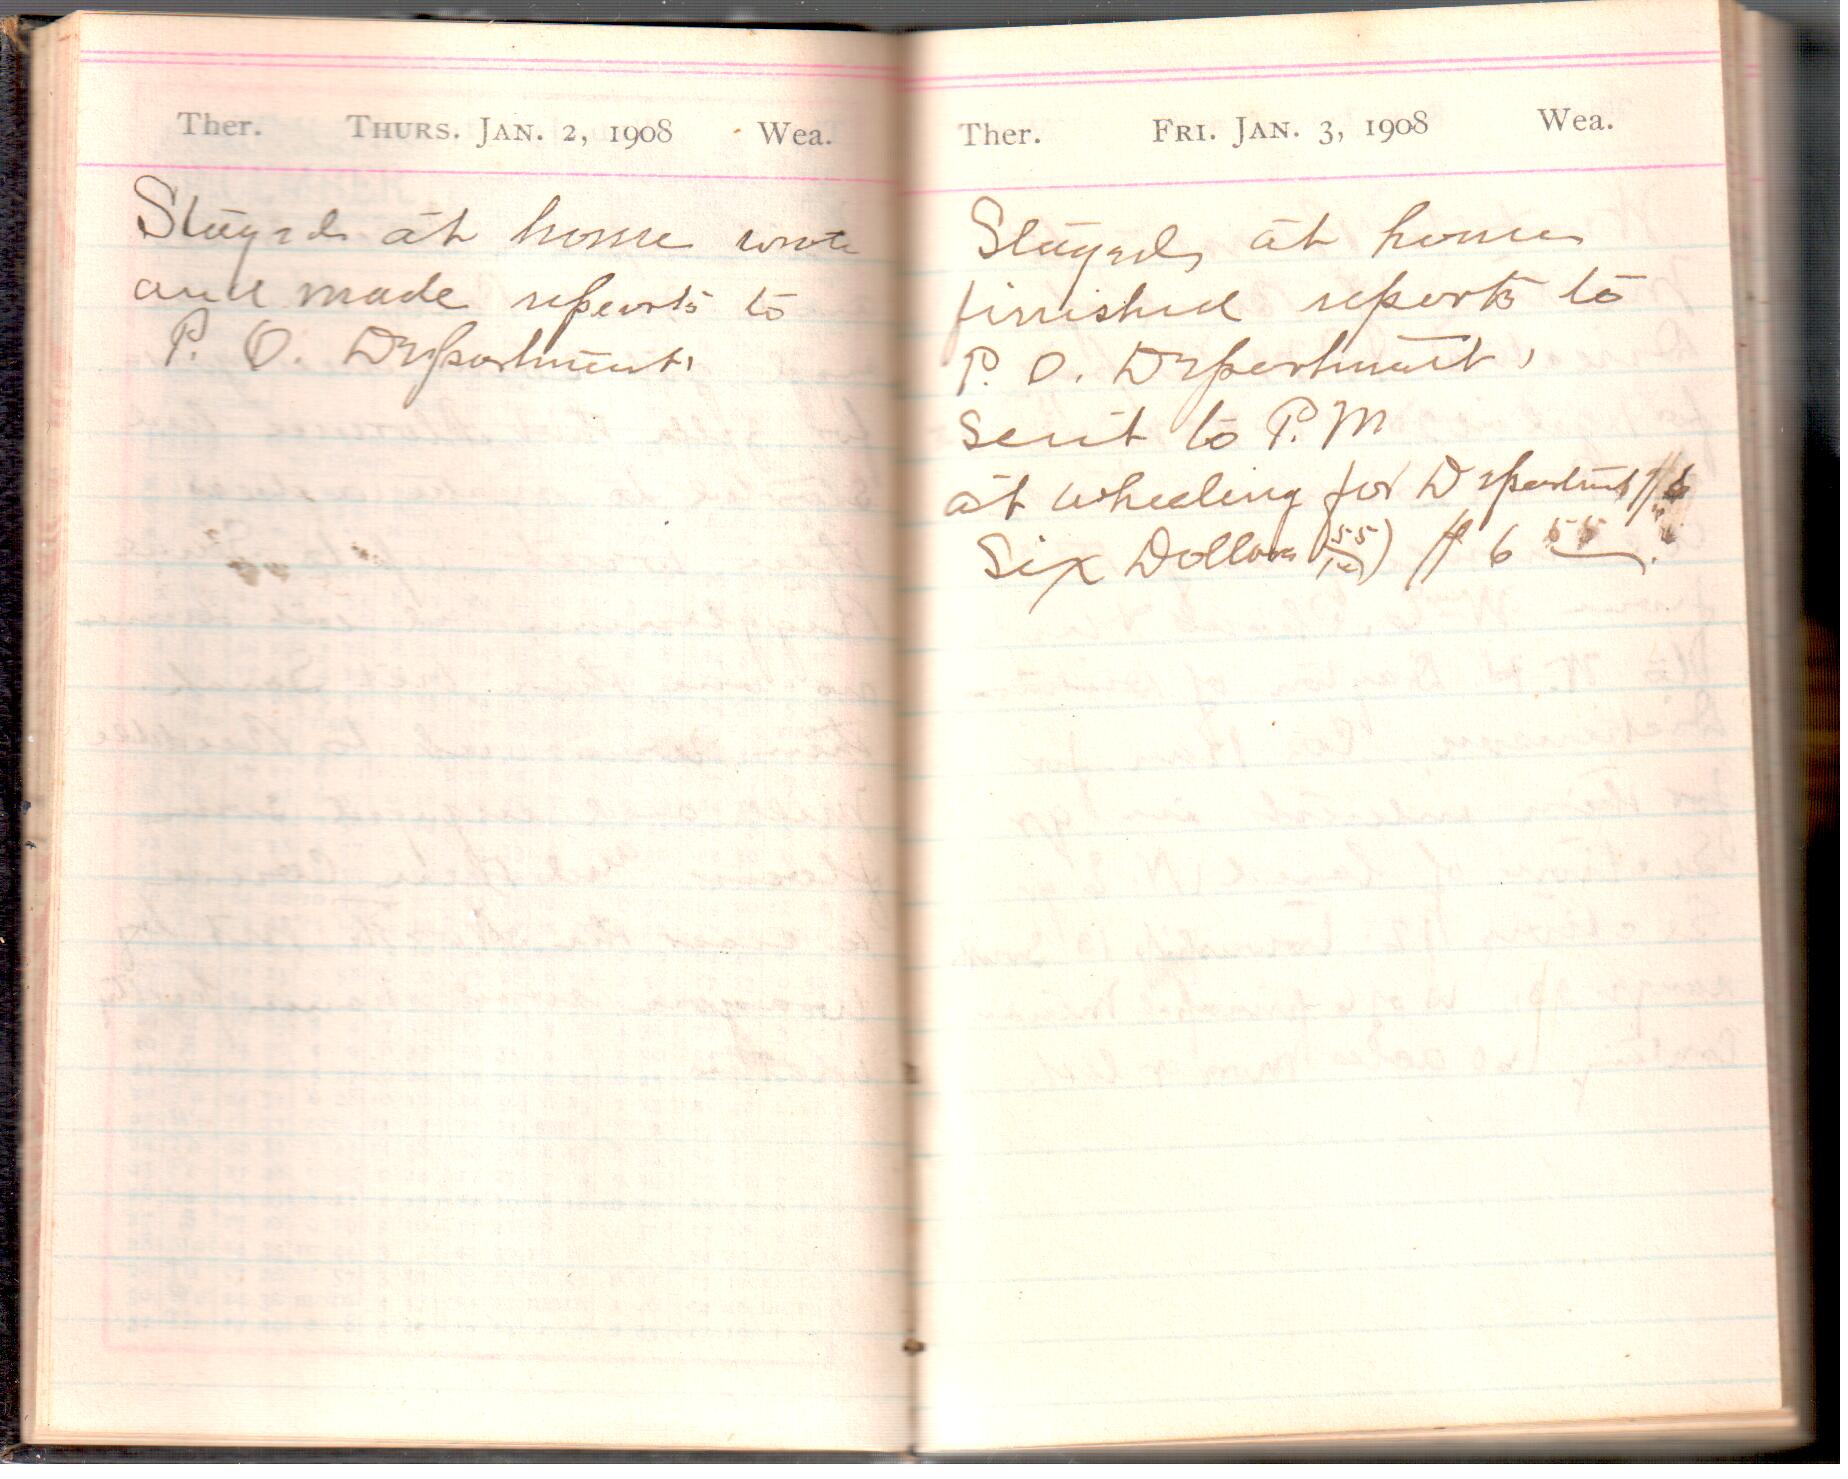 Ther. THURS. JAN. 2, 1908 Wea.
Stayed at home wrote
and made reports to
P. O. Department.
Ther. FRI. JAN. 3, 1908 Wea.
Stayed at home
finished reports to
P. O. Department,
sent to P. M
at wheeling for Department
Six Dollars (55/100) $ 6 55